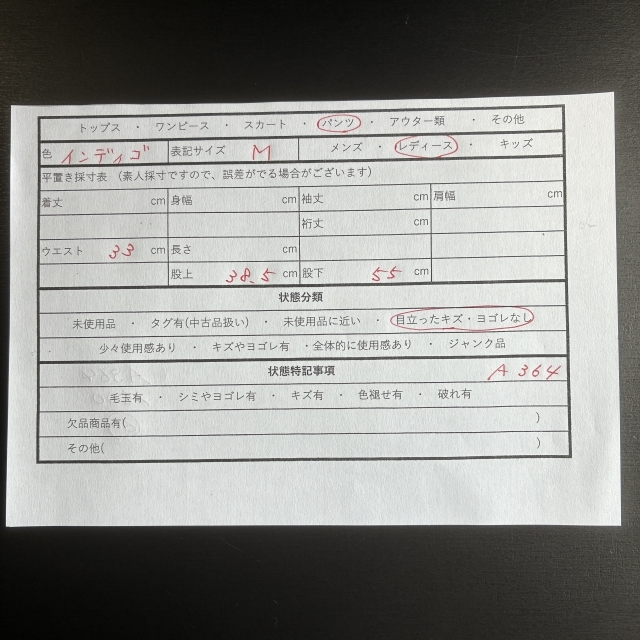 トップス ・ ワンピース ・ スカート ・ パンツ ・ アウター類 ・ その他
色 インディゴ 表記サイズ M メンズ ・ レディース ・ キッズ
平置き採寸表 (素人採寸ですので、誤差がでる場合がございます)
着丈 cm 身幅 cm 袖丈 cm 肩幅 cm
裄丈 cm
ウエスト 33 cm 長さ cm
股上 38.5 cm 股下 55 cm
状態分類
未使用品 ・ タグ有(中古品扱い) ・ 未使用品に近い ・ 目立ったキズ・ヨゴレなし
少々使用感あり ・ キズやヨゴレ有 ・全体的に使用感あり ・ ジャンク品
状態特記事項 A364
毛玉有 ・ シミやヨゴレ有 ・ キズ有 ・ 色褪せ有 ・ 破れ有
欠品商品有( )
その他( )